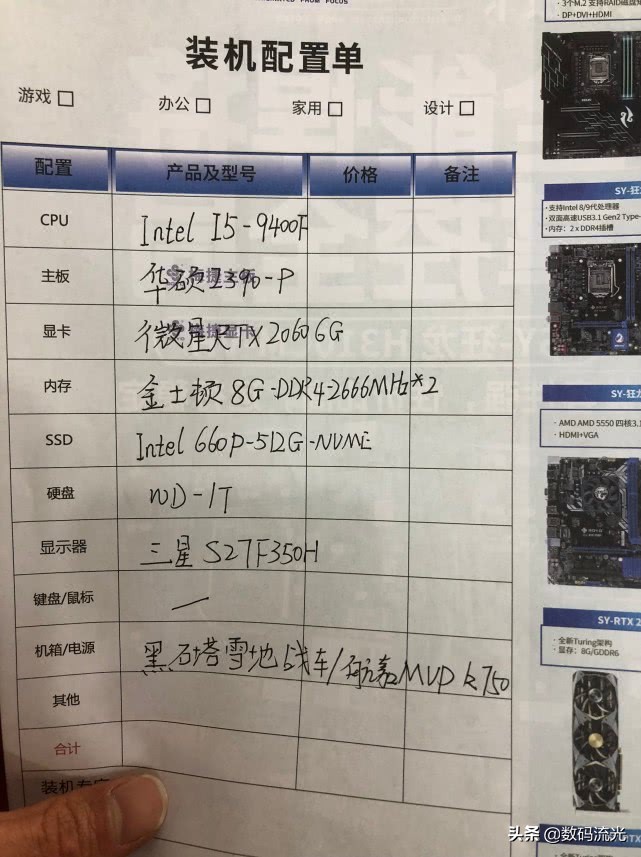 · 3个M.2 支持RAID磁盘
· DP+DVI+HDMI
装机配置单
游戏 □ 办公 □ 家用 □ 设计 □
配置 产品及型号 价格 备注
CPU Intel I5-9400F
主板 华硕Z390-P
显卡 微星RTX2060 6G
内存 金士顿8G-DDR4-2666MHz*2
SSD Intel 660P-512G-NVME
硬盘 WD-1T
显示器 三星 S27F350H
键盘/鼠标 —
机箱/电源 黑石塔雪地战车/航嘉MVP K750
其他
合计
SY-狂
· 支持Intel 8/9代处理器
· 双面高速USB3.1 Gen2 Type-
· 内存：2 x DDR4插槽
SY-狂
· AMD AMD 5550 四核3.
· HDMI+VGA
SY-RTX 2
· 全新Turing架构
· 显存：8G/GDDR6
头条 @数码流光